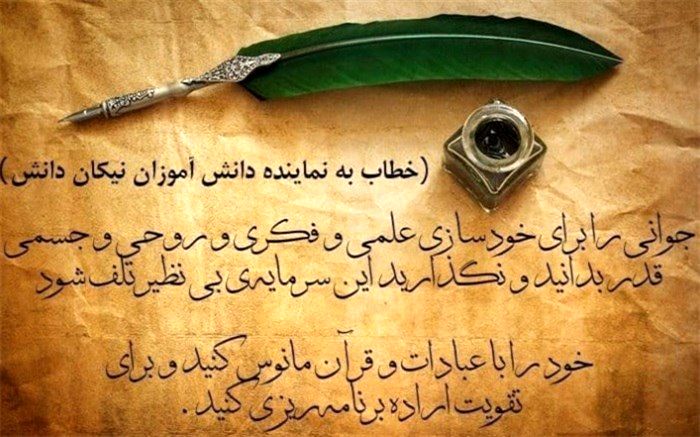 (خطاب به نماینده دانش آموزان نیکان دانش)
جوانی را برای خودسازی علمی و فکری و روحی و جسمی
قدر بدانید و نگذارید این سرمایه‌ی بی نظیر تلف شود
خود را با عبادات و قرآن مانوس کنید و برای
تقویت اراده برنامه ریزی کنید .